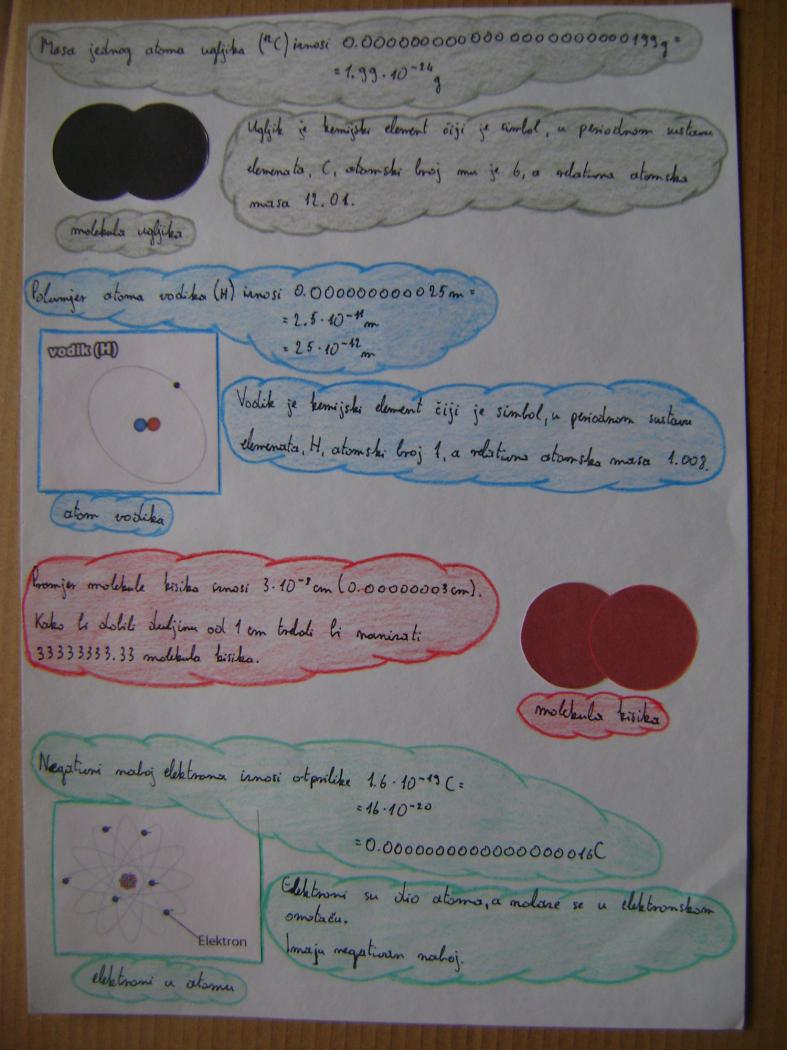 Masa jednog atoma ugljika (¹²C) iznosi 0.00000000000000000000000199g=
=1.99·10⁻²⁴g
Ugljik je kemijski element čiji je simbol, u periodnom sustavu
elemenata, C, atomski broj mu je 6, a relativna atomska
masa 12.01.
molekula ugljika
Polumjer atoma vodika (H) iznosi 0.000000000025m=
=2.5·10⁻¹¹m
=25·10⁻¹²m
vodik (H)
Vodik je kemijski element čiji je simbol, u periodnom sustavu
elemenata, H, atomski broj 1, a relativna atomska masa 1.008.
atom vodika
Promjer molekule kisika iznosi 3·10⁻⁸cm (0.00000003cm).
Kako bi dobili duljinu od 1 cm trebali bi nanizati
33333333.33 molekula kisika.
molekula kisika
Negativni naboj elektrona iznosi otprilike 1.6·10⁻¹⁹C=
=16·10⁻²⁰
=0.00000000000000000016C
Elektron
Elektroni su dio atoma, a nalaze se u elektronskom
omotaču.
Imaju negativan naboj.
elektroni u atomu